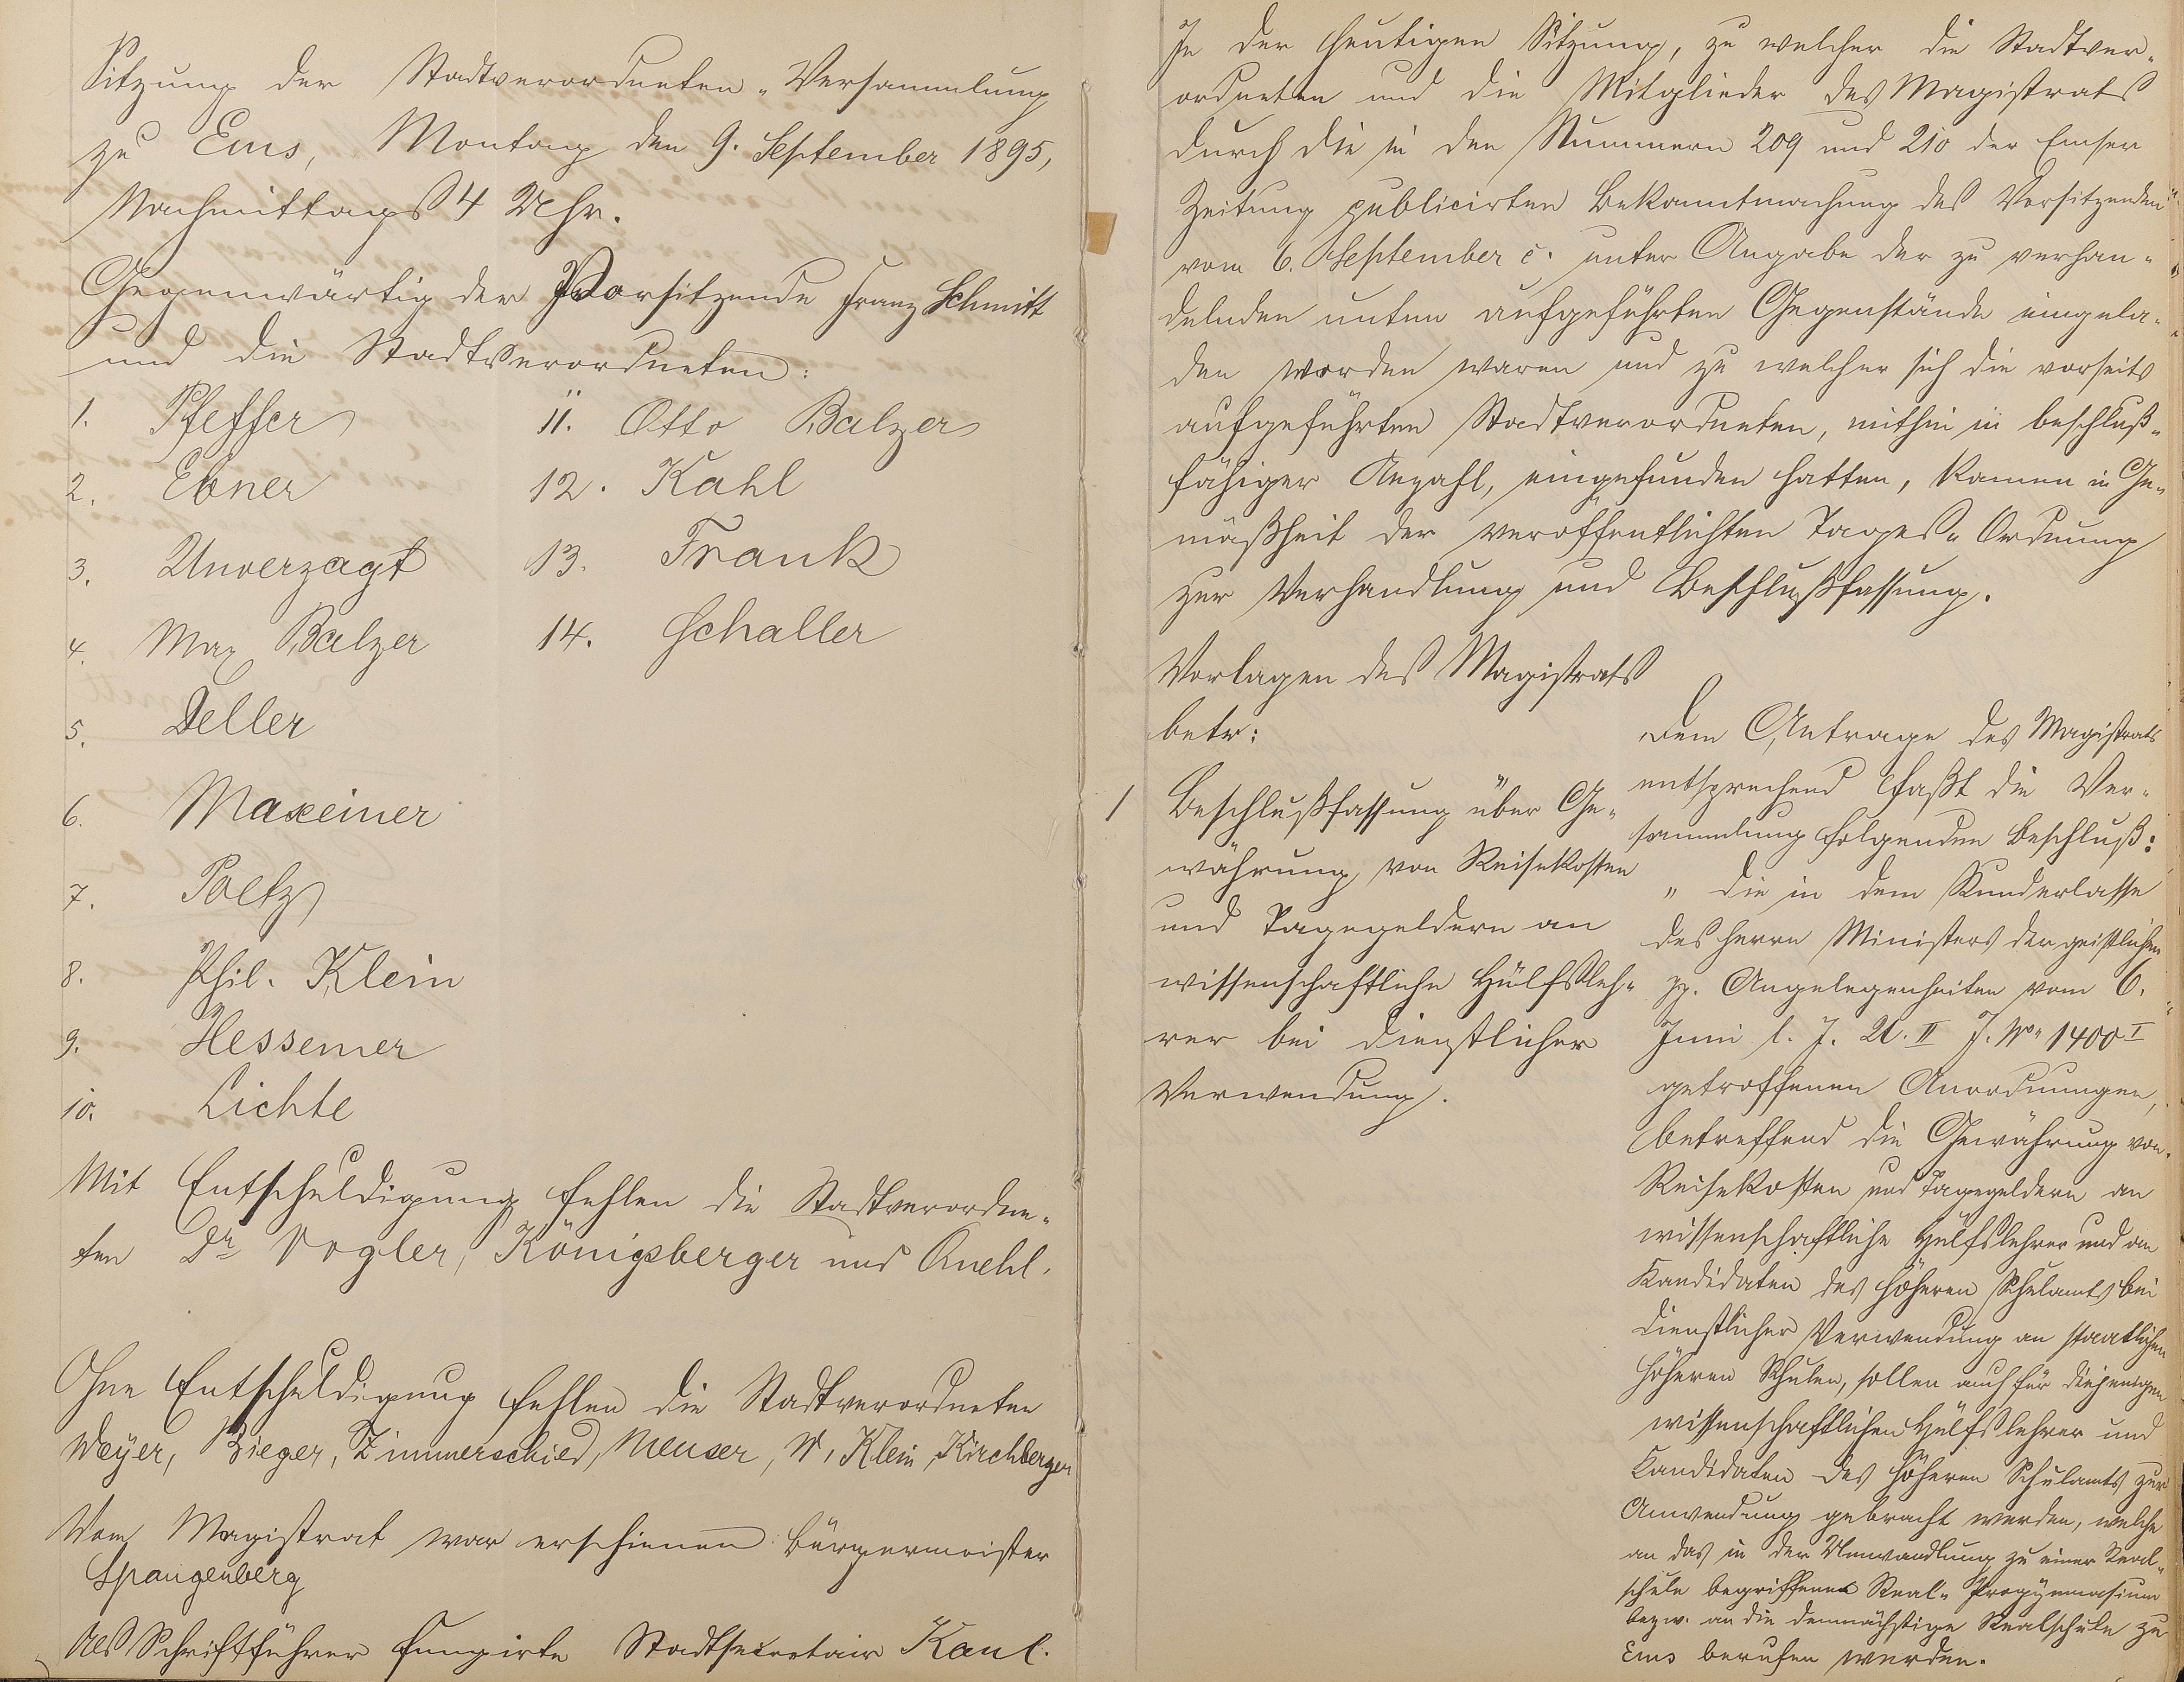 Sitzung der Stadtverordneten-Versammlung
zu Ems, Montag den 9. September 1895,
Nachmittags 4 Uhr.
Gegenwärtig der Vorsitzende Franz Schmitt
und die Stadtverordneten:
1. Pfeffer
2. Ebner
3. Unverzagt
4. Max Balzer
5. Deller
6. Maxeiner
7. Poetz
8. Phil. Klein
9. Hessemer
10. Lichte
11. Otto Balzer
12. Kahl
13. Frank
14. Schaller
Mit Entschuldigung fehlen die Stadtverordne-
ten Dr Vogler, Königsberger und Kuehl.
Ohne Entschuldigung fehlen die Stadtverordneten
Weyer, Bieger, Zimmerschied, Meuser, W. Klein, Kirchberger
Vom Magistrat war erschienen: Bürgermeister
Spangenberg
Als Schriftführer fungirte Stadtsecretair Kaul.
In der heutigen Sitzung, zu welcher die Stadtver-
ordneten und die Mitglieder des Magistrats
durch die in den Nummern 209 und 210 der Emser
Zeitung publicirten Bekanntmachung des Vorsitzenden
vom 6. September c. unter Angabe der zu verhan-
delnden unten aufgeführten Gegenstände eingela-
den worden waren und zu welcher sich die vorseits
aufgeführten Stadtverordneten, mithin in beschluß-
fähiger Anzahl, eingefunden hatten, kamen in Ge-
mäßheit der veröffentlichten Tages-Ordnung
zur Verhandlung und Beschlußfassung.
Vorlagen des Magistrats
betr:
1 Beschlußfassung über Ge-
währung von Reisekosten
und Tagegeldern an
wissenschaftliche Hülfsleh-
rer bei dienstlicher
Verwendung.
Dem Antrage des Magistrats
entsprechend faßt die Ver-
sammlung folgenden Beschluß:
"die in dem Runderlasse
des Herrn Ministers der geistlichen
pp. Angelegenheiten vom 6.
Juni l. J. U. II J. No 1400 I
getroffenen Anordnungen,
betreffend die Gewährung von
Reisekosten und Tagegeldern an
wissenschaftliche Hülfslehrer und an
Kandidaten des höheren Schulamts bei
dienstlicher Verwendung an staatlichen
höheren Schulen, sollen auch für diejenigen
wissenschaftlichen Hülfslehrer und
Kandidaten des höheren Schulamts zur
Anwendung gebracht werden, welche
an das in der Umwandlung zu einer Real-
schule begriffene Real-Progymnasium
bezw. an die demnächstige Realschule zu
Ems berufen werden.